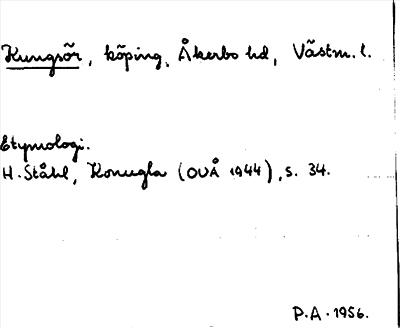 Kungsör, köping, Åkerbo hd, Västm. l.
Etymologi.
H. Ståhl, Konugla (OUÅ 1944), s. 34.
P.A. 1956.